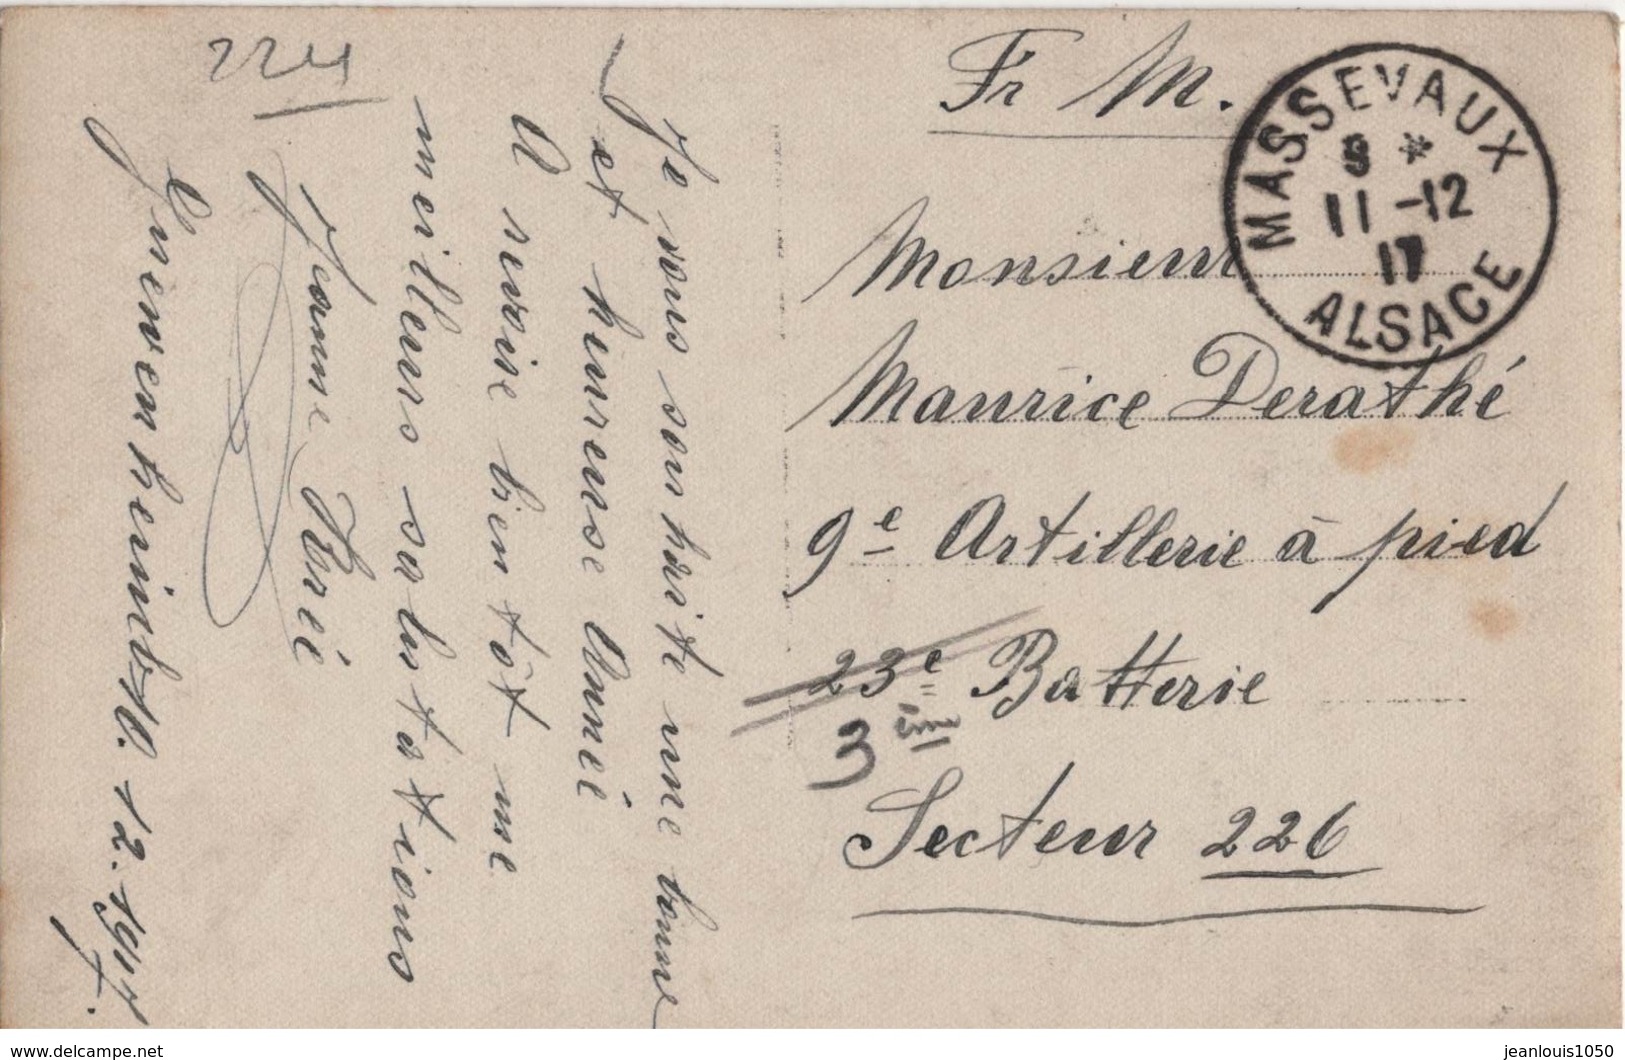 224
Je vous souhaite une bonne
et heureuse Année
A revoir bientôt me
meilleurs salutations
Jeanne
10. 12. 1917.
Fr M.
MASSEVAUX
11 -12
17
ALSACE
Monsieur
Maurice Derathé
9e Artillerie à pied
23e Batterie
3ème
Secteur 226
www.delcampe.net
jeanlouis1050